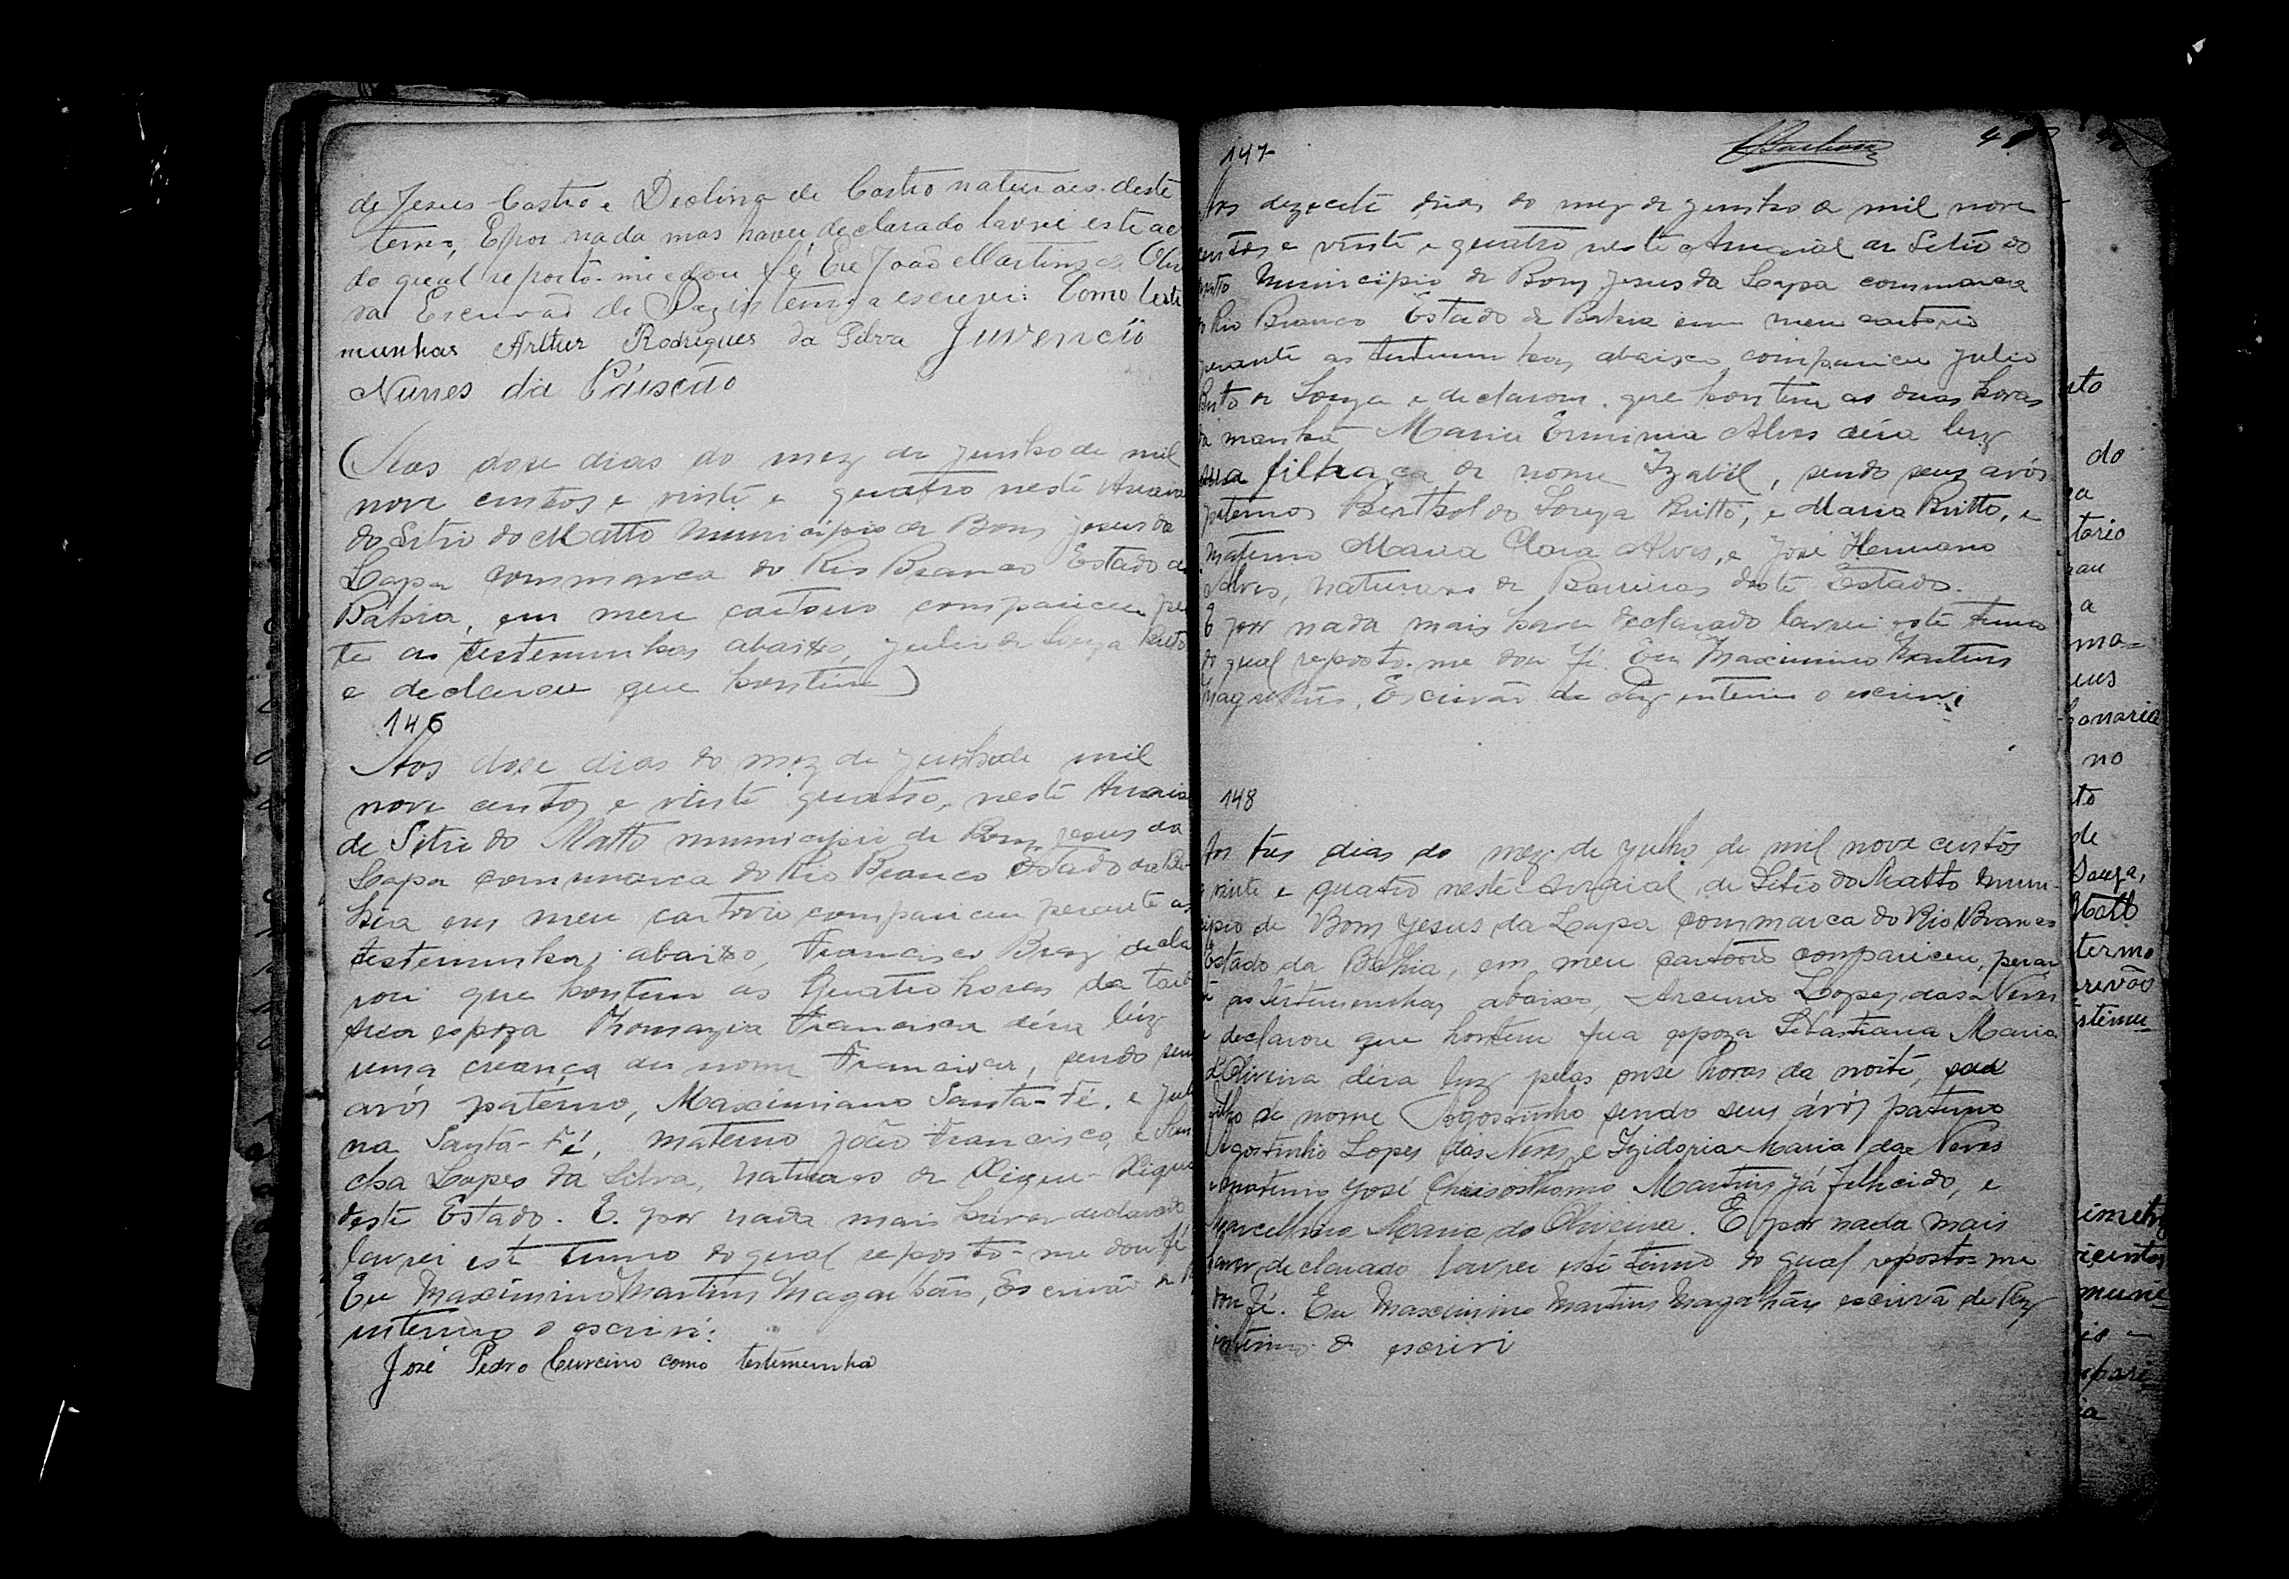 de Jesus Castro e Deolina de Castro naturaes deste
termo, E por nada mas haver declarado lavrei este ac
do qual reporto-me e dou fé Eu João Martins de Olive
ra Escrivão de Paz interino a escrevi: Como teste
munhas Arthur Rodrigues da Silva Juvencio
Nunes da
(Aos dose dias do mez de junho de mil
nove centos e vinte e quatro neste Arraia
do Sitio do Matto municipio de Bom Jesus da
Lapa commarca do Rio Branco Estado da
Bahia, em meu cartorio compareceu pe
te as testemunhas abaixo, Julio de Souza Brito
e declarou que hontem)
146
Aos dose dias do mez de junho de mil
nove centos e vinte quatro, neste Arraia
de Sitio do Matto municipio de Bom Jesus da
Lapa commarca do Rio Branco Estado da Ba
hia em meu cartorio compareceu perante as
testemunhas abaixo, Francisco Braz decla
rou que hontem as quatro horas da tarde
sua espoza Thomazia Francisca déra luz
uma creança de nome Francisca, sendo seus
avós paterno, Maximiano Santa-Fé, e Julia
na Santa-Fé, materno João Francisco, e
Lopes da Silva, naturaes de Xique-Xique
deste Estado. E. por nada mais haver declarado
lavrei este termo do qual reporto-me dou fé
Eu Maximino Martins Magalhães, Escrivão de P
interino o escrivi:
José Pedro Curcino como testemunha
147
Aos dezecete dias do mez de junho de mil nove
centos e vinte e quatro neste Arraial de Sitio do
Matto Municipio de Bom Jesus da Lapa commarca
do Rio Branco Estado da Bahia em meu cartorio
perante as testemunhas abaixo compareceu Julio
Brito de Souza e declarou que hontem as duas horas
da manhã Maria Erminia Alves déra luz
sua filha de nome Izabél, sendo seus avós
paternos Bertholdo Souza Britto, e Maria Britto, e
materno Maria Clara Alves, e José Hermano
Alves, naturaes de Barreiras deste Estado.
E por nada mais haver declarado lavrei este termo
do qual reporto-me dou fé. Eu Maximino Martins
Magalhães, Escrivão de Paz interino o escrivi
148
Aos tres dias do mez de julho de mil nove centos
e vinte e quatro neste Arraial de Sitio do Matto muni-
cipio de Bom Jesus da Lapa commarca do Rio Branco
Estado da Bahia, em meu cartorio compareceu, peran
te as testemunhas abaixo, Arcenio Lopes das Neves
e declarou que hontem sua espoza Sebastiana Maria
d'Oliveira déra luz pelas onse horas da noite, seu
filho de nome Agostinho sendo seus ávós paterno
Agostinho Lopes das Neves, e Izidoria Maria das Neves
e materno José Chrisosthomo Martins já fellecido, e
Marcellina Maria de Oliveira. E por nada mais
haver declarado lavrei este termo do qual reporto-me
dou fé. Eu Maximino Martins Magalhães escrivã de Paz
interino o escrivi
nto
do
tario
a
ma-
no
to
de
Souza,
Matto
termo
crivão
stemu-